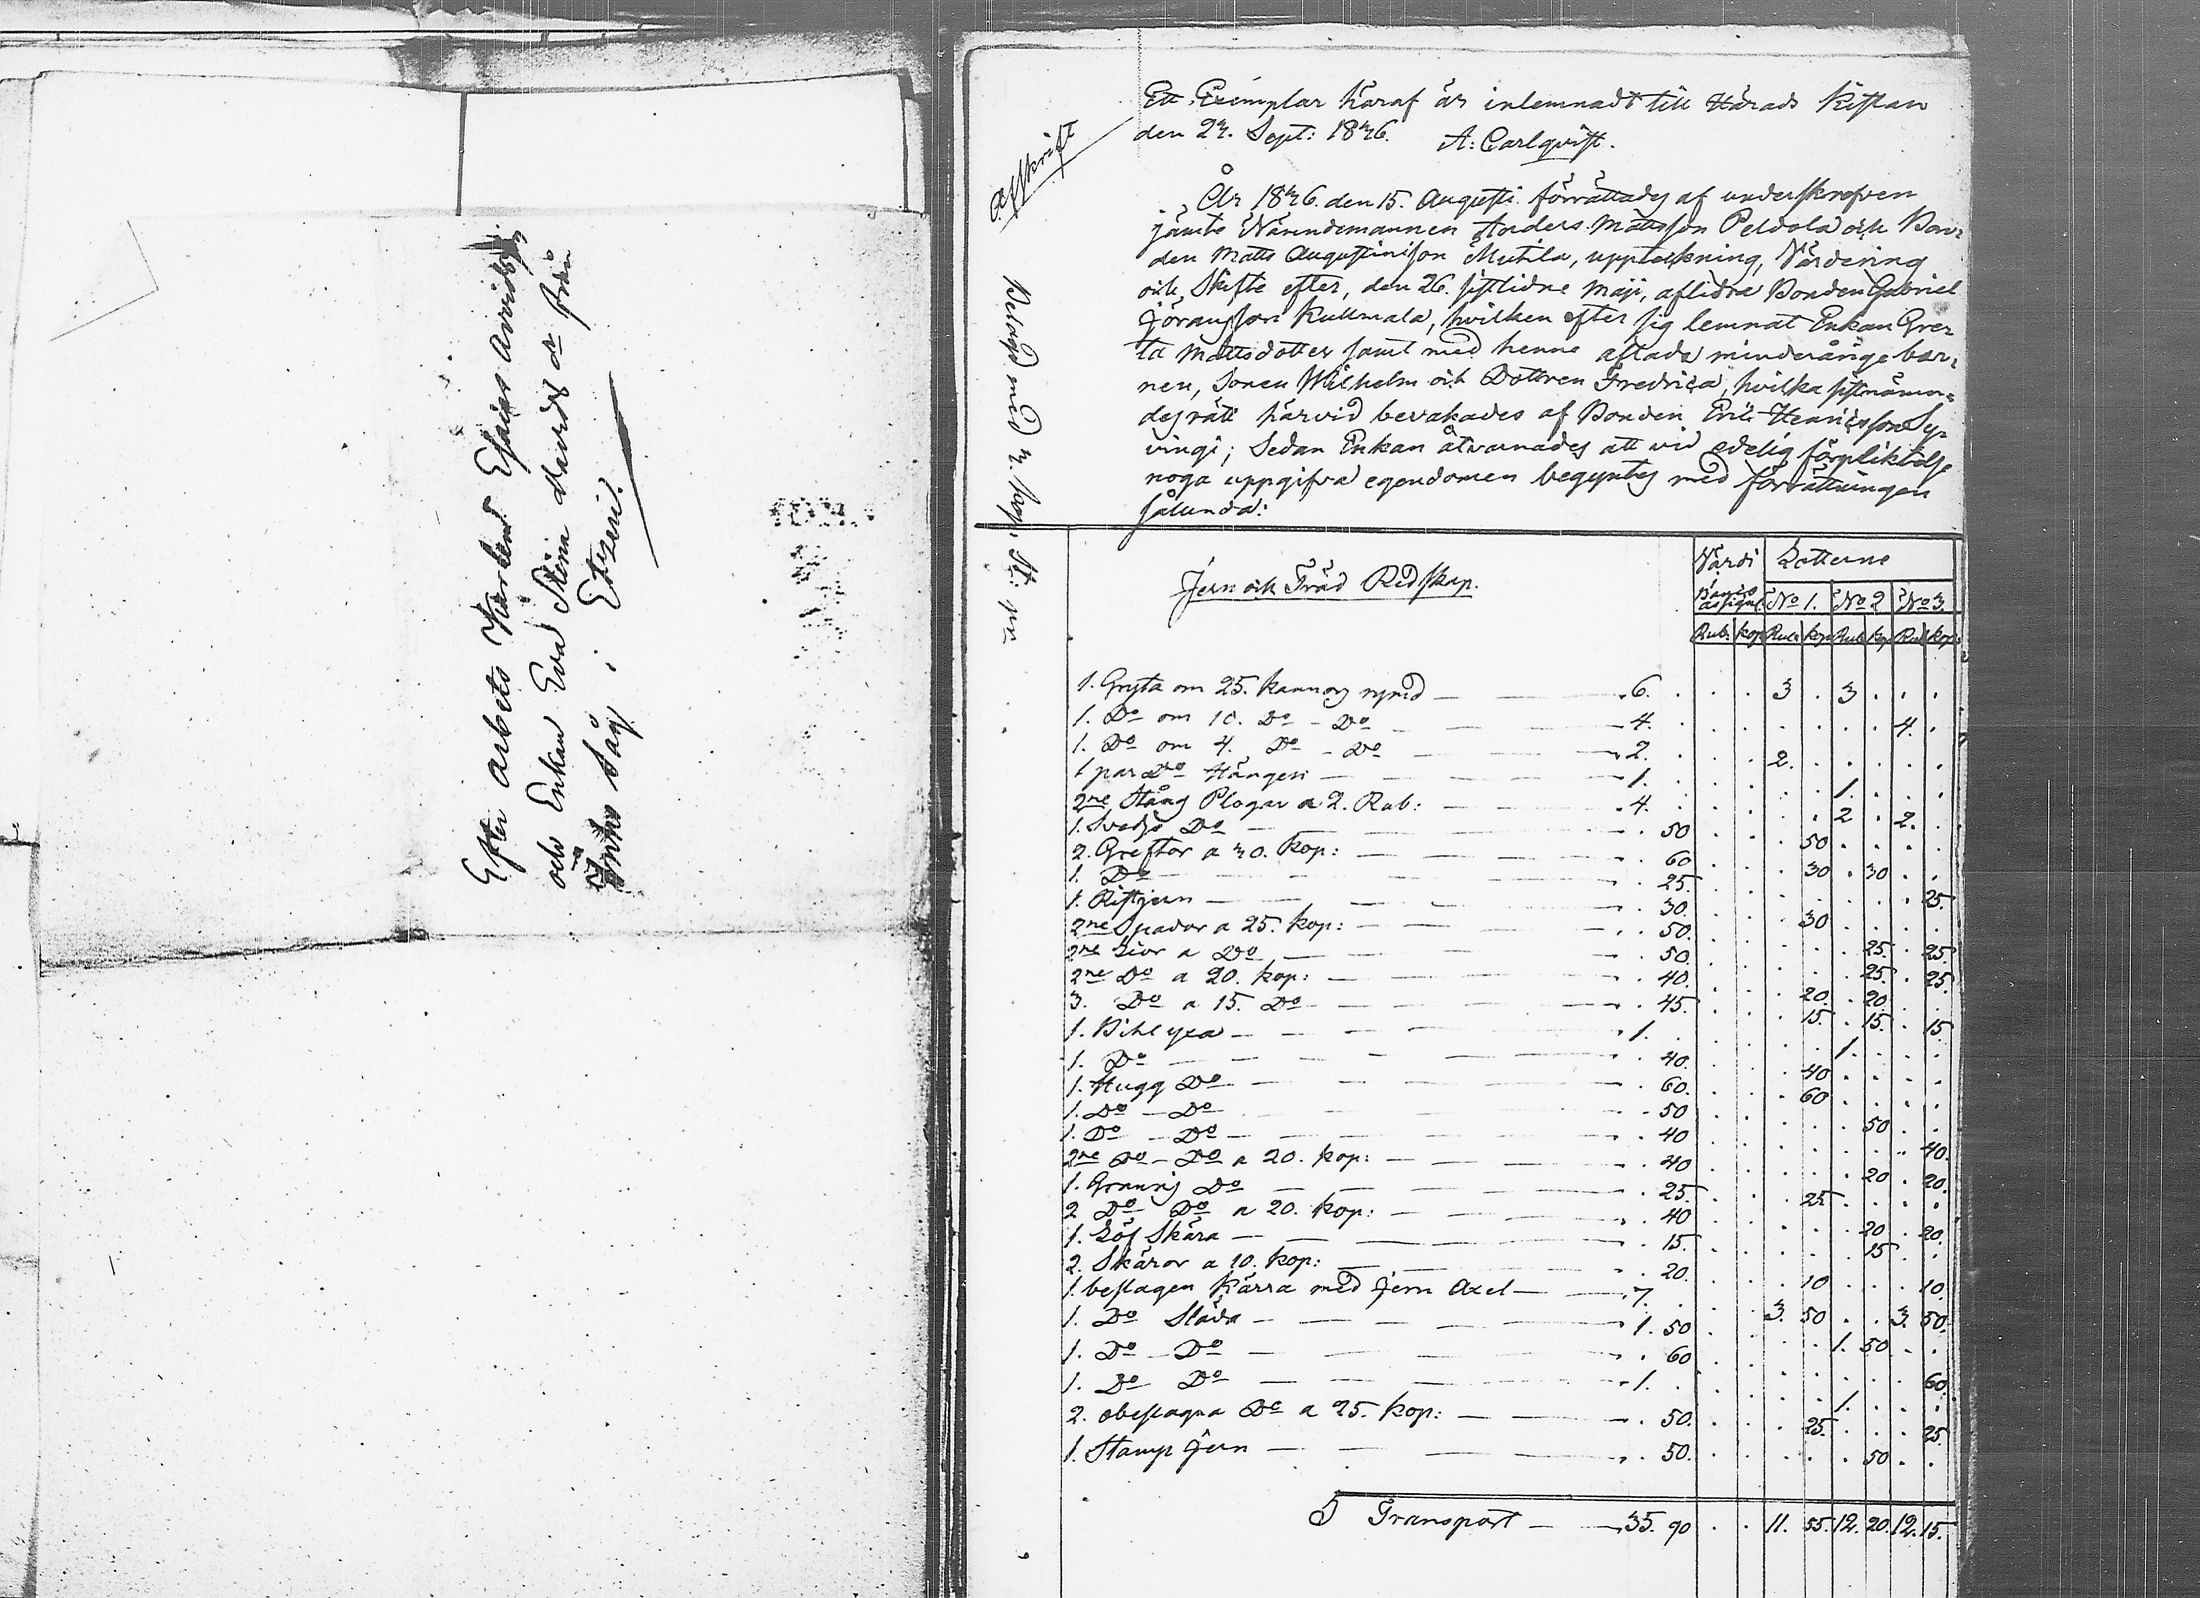 Efter arbets Karlens Esaias Arvids
och Enkan Eva Stina Davidsdr från
Såg i Etzeri.
Ett Exemplar häraf är inlemnadt till Härads Kistan
den 24. Sept: 1846. A: Carlqvist.
Afskrift
Belagd med 4. kop. St: ppr
År 1846. den 15. Augusti förrättades af underskrefven
jämte Nämndemannen Anders Mattsson Peldola och Bon=
den Matts Augustinisson Mutila, uppteckning, Värdering
och Skifte efter, den 26. sistlidne Maji, aflidne Bonden Gabriel
Joransson Kullmala, hvilken efter sig lemnat Enkan Gre=
ta Mattsdotter samt med henne aflade minderårige bar=
nen, Sonen Wilhelm och Dottren Fredrica, hvilka sistnämn=
des rätt härvid bevakades af Bonden Eric Henricsson Sy=
vingi; Sedan Enkan åtvarnades att vid edelig förpliktelse
noga uppgifva egendomen begyntes med förrättningen
sålunda:
Jern och Träd Redskap.
Värdi Lotterne
Banco assignat. No 1. No 2 No 3.
Rub. kop. Rub. kop. Rub. kop. Rub. kop.
1. Gryta om 25. kannors rymd — 6. 3 3
1. Do om 10. Do - Do — 4. 4.
1. Do om 4. Do - Do — 2. 2.
1 par Do Hängen — 1. 1.
2ne Stång Plogar a 2. Rub: — 4. 2 2.
1. Svedje Do — 50 50
2. Greftor a 30. kop: — 60 30 30
1. Do — 25. 25.
1. Ristjern — 30. 30
2ne Spador a 25. kop: — 50. 25. 25.
2ne Lior a Do — 50. 25. 25.
2ne Do a 20. kop: — 40. 20. 20
3. Do a 15. Do — 45. 15. 15. 15
1. Bihl yxa — 1. 1.
1. Do — 40. 40
1. Hugg Do — 60. 60
1. Do — Do — 50 50
1. Do — Do — 40 40.
2ne Do — Do a 20. kop: — 40 20 20.
1. Do — 25. 25
2 Do Do a 20. kop: — 40 20 20.
1. Löf Skära — 15. 15
2. Skäror a 10. kop: — 20. 10 10
1. beslagen Kärra med jern Axel — 7. 3. 50 3. 50.
1. Do Släda — 1. 50 1. 50
1. Do — Do — 60 60
1. Do Do — 1. 1.
2. obeslagna Do a 25. kop: — 50. 25. 25
1. Stamp jern — 50. 50
Transport — 35. 90 11. 55. 12. 20. 12. 15.